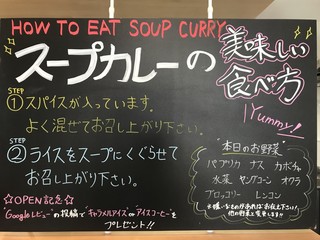 HOW TO EAT SOUP CURRY
スープカレーの
美味しい
食べ方
Yummy!
STEP
①スパイスが入っています。
よく混ぜてお召し上がり下さい。
STEP
②ライスをスープにくぐらせて
お召し上がり下さい。
☆OPEN記念☆
"Googleレビュー"の投稿で"キャラメルアイス"or"アイスコーヒー"を
プレゼント!!
"本日のお野菜"
パプリカ ナス カボチャ
水菜 ヤングコーン オクラ
ブロッコリー レンコン
※嫌いなものがあればお伝え下さい!
他の野菜と変更します!!